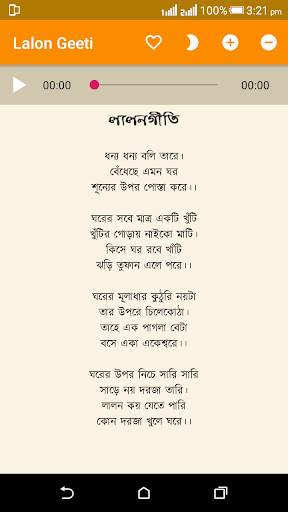 3:21 pm
Lalon Geeti
00:00
00:00
লালনগীতি
ধন্য ধন্য বলি তারে।
বেঁধেছে এমন ঘর
শূন্যের উপর পোস্তা করে।।
ঘরের সবে মাত্র একটি খুঁটি
খুঁটির গোড়ায় নাইকো মাটি।
কিসে ঘর রবে খাঁটি
ঝড়ি তুফান এলে পরে।।
ঘরের মূলাধার কুঠুরি নয়টা
তার উপরে চিলেকোঠা।
তাহে এক পাগলা বেটা
বসে একা একেশ্বরে।।
ঘরের উপর নিচে সারি সারি
সাড়ে নয় দরজা তারি।
লালন কয় যেতে পারি
কোন দরজা খুলে ঘরে।।